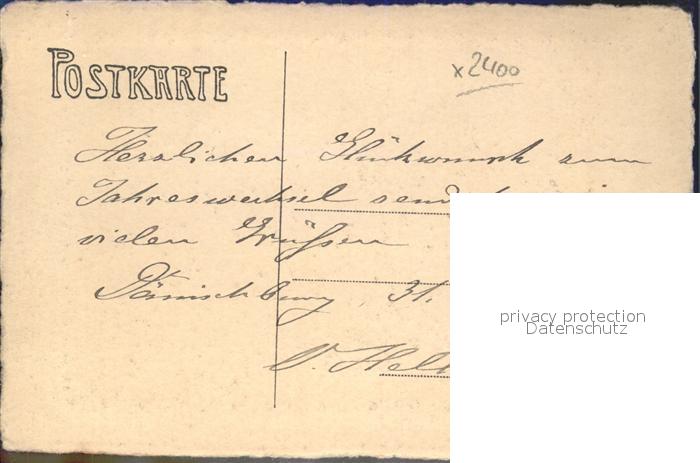 POSTKARTE
x2400
Herzlichen Glückwunsch zum
Jahreswechsel
vielen Grüßen
Dänischburg, 31.
privacy protection
Datenschutz